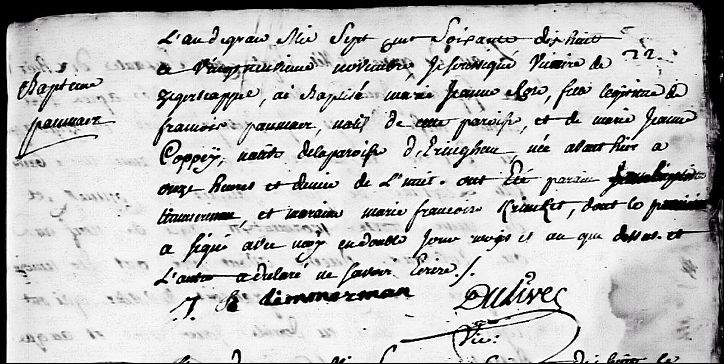 Baptême
paumier
L'an de grace Mil Sept cent Soixante dix huit
le vingt neuvieme novembre, je soussigné vicaire de
zegerscappel, ai Baptisé marie jeanne rose, fille legitime de
francois paumier, natif de cette paroisse, et de marie jeanne
Coppey, native de la paroisse d'Eringhem, née avant hier a
onze heures et demie de L'nuit. ont Eté parain jean baptiste
timmerman, et maraine marie francoise, dont le premier
a signé avec moy en double jour mois et an que dessus. et
L'autre a declaré ne savoir Ecrire /.
J B timmerman
vic: